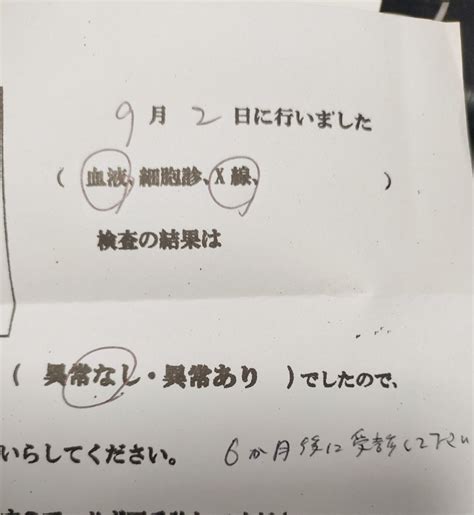 9月2日に行いました
(血液、細胞診、X線、 )
検査の結果は
(異常なし・異常あり )でしたので、
いらしてください。 6か月後に受診して下さい